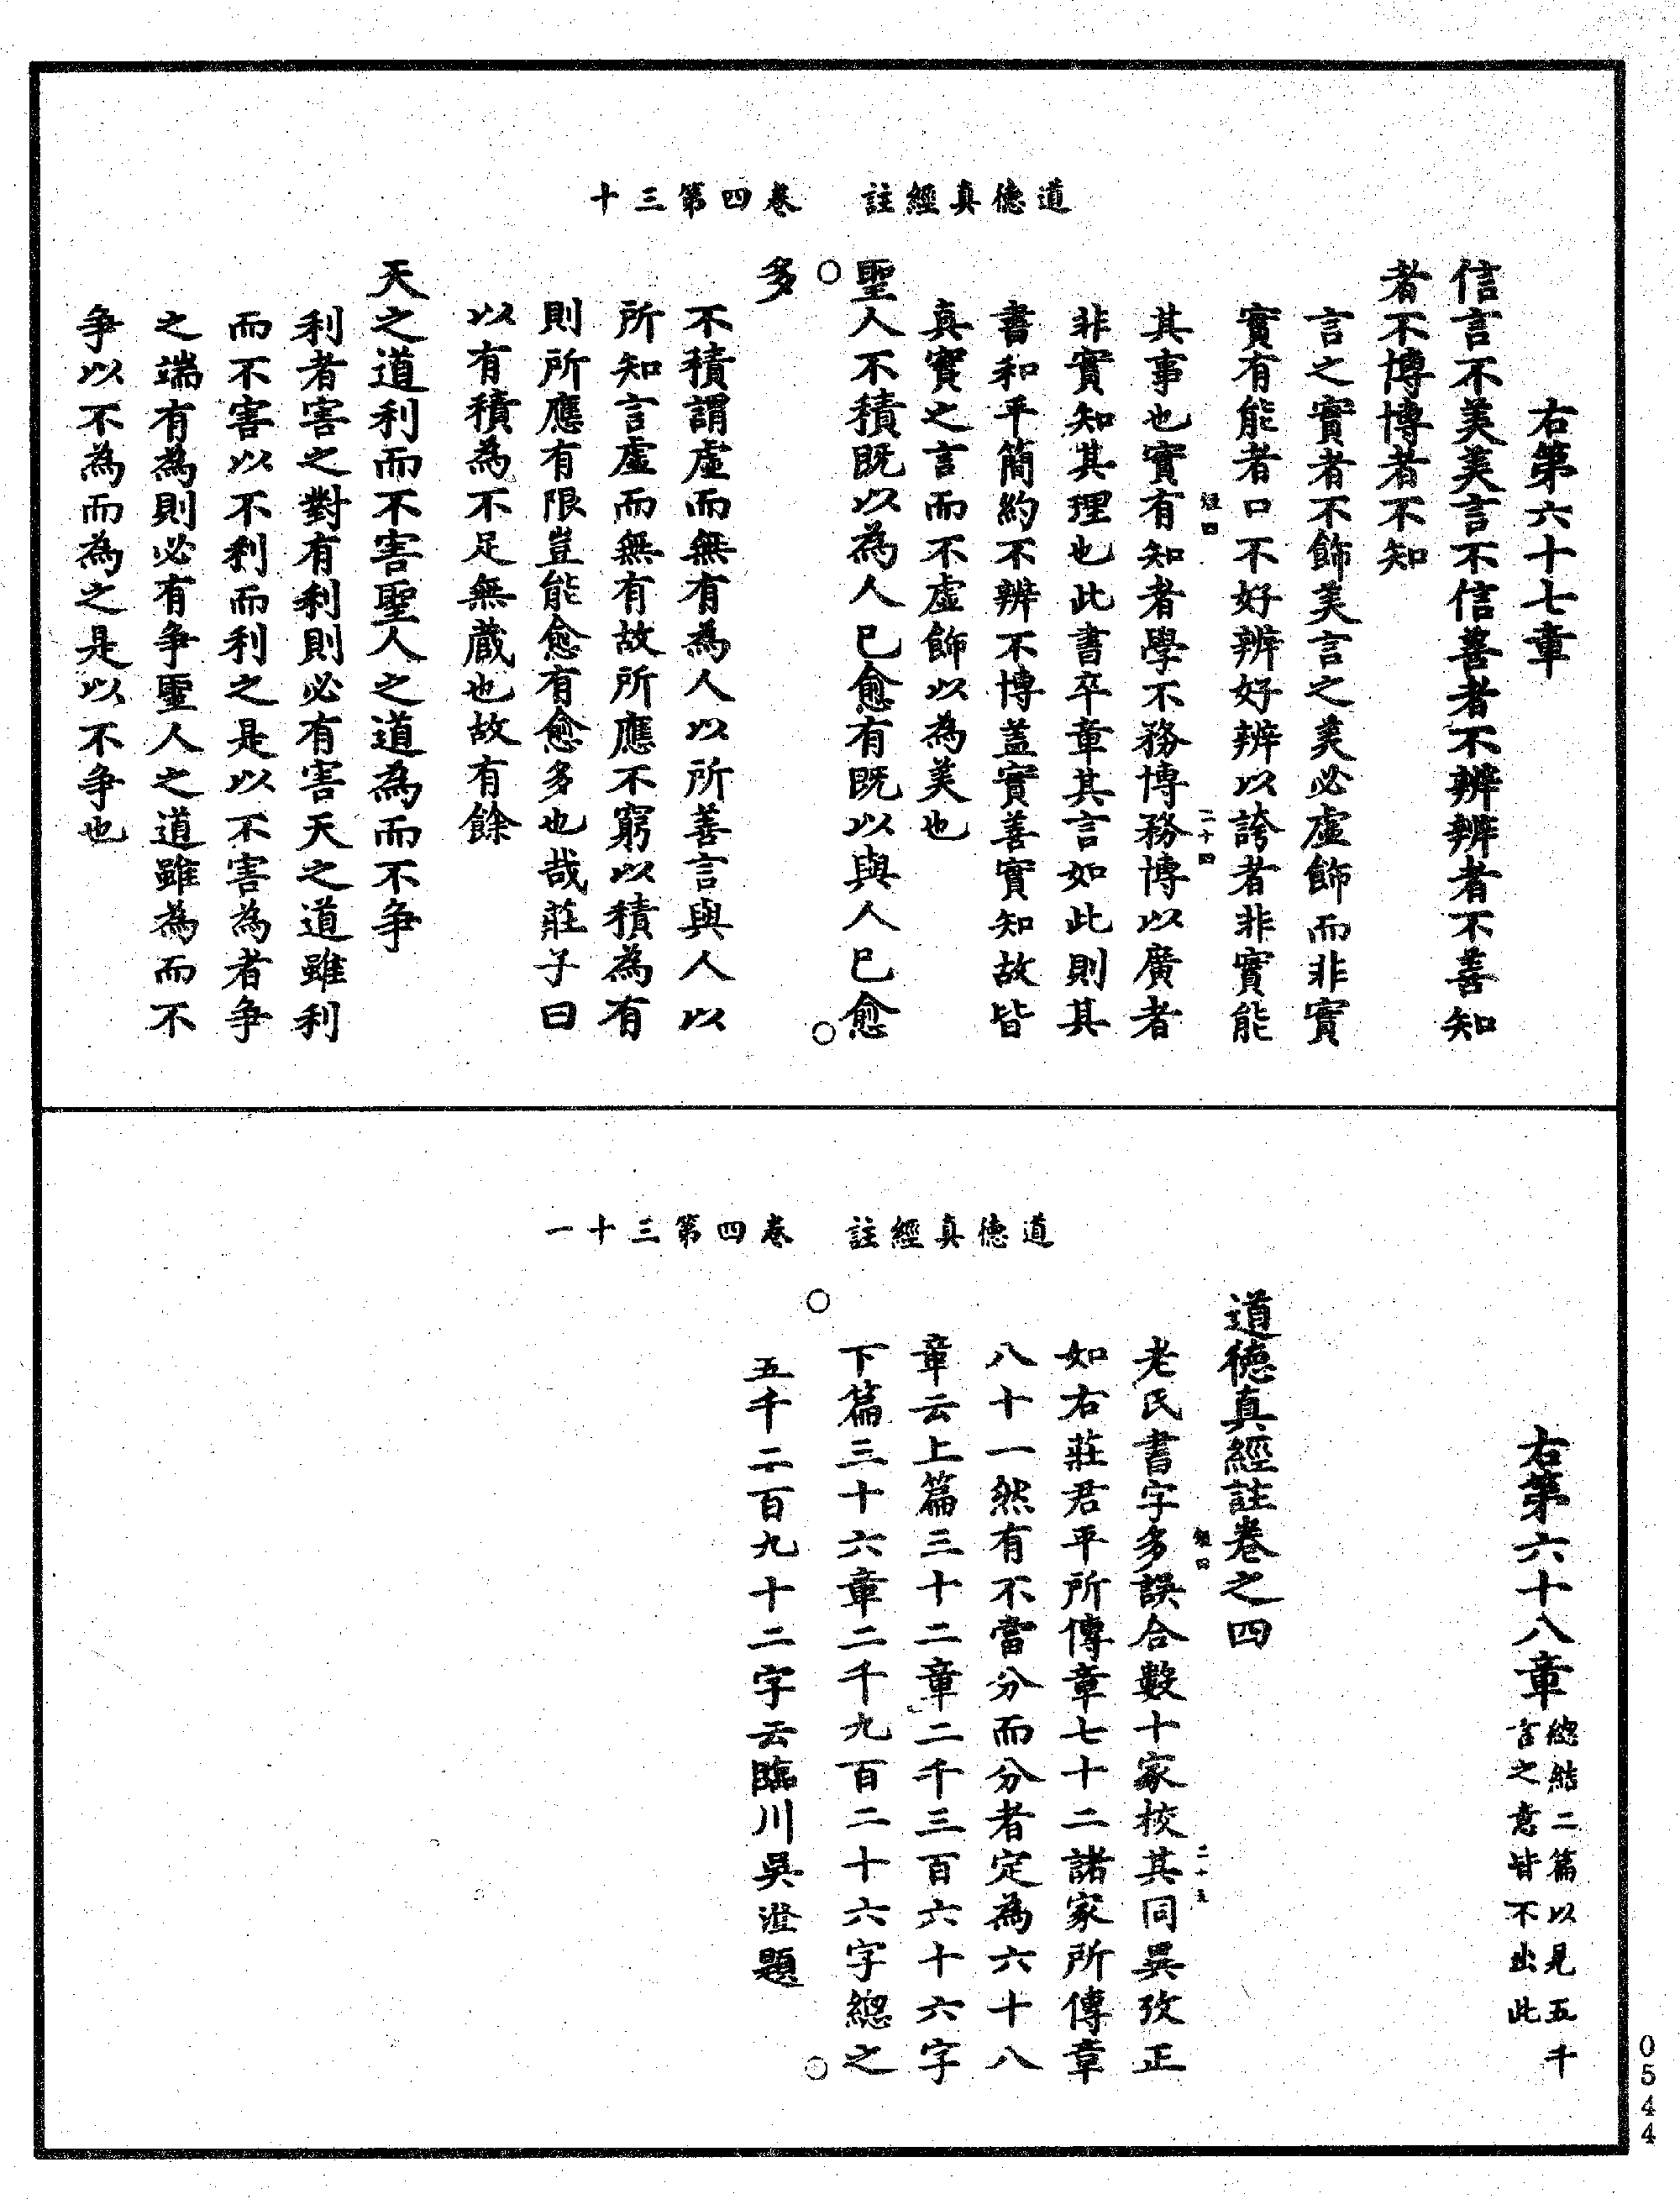 道德真經註　卷四第三十
右第六十七章
信言不美美言不信善者不辨辨者不善知
者不博博者不知
言之實者不飾美言之美必虛飾而非實
實有能者口不好辨好辨以誇者非實能
經四
二十四
其事也實有知者學不務博務博以廣者
非實知其理也此書卒章其言如此則其
書和平簡約不辨不博蓋實善實知故皆
真實之言而不虛飾以為美也
聖人不積既以為人已愈有既以與人已愈
多
不積謂虛而無有為人以所善言與人以
所知言虛而無有故所應不窮以積為有
則所應有限豈能愈有愈多也哉莊子曰
以有積為不足無藏也故有餘
天之道利而不害聖人之道為而不爭
利者害之對有利則必有害天之道雖利
而不害以不利而利之是以不害為者爭
之端有為則必有爭聖人之道雖為而不
爭以不為而為之是以不爭也
道德真經註　卷四第三十一
右第六十八章
總結二篇以見五千
言之意皆不出此
道德真經註卷之四
經四
二十五
老氏書字多誤合數十家校其同異攷正
如右莊君平所傳章七十二諸家所傳章
八十一然有不當分而分者定為六十八
章云上篇三十二章二千三百六十六字
下篇三十六章二千九百二十六字總之
五千二百九十二字云臨川吳澄題
0544